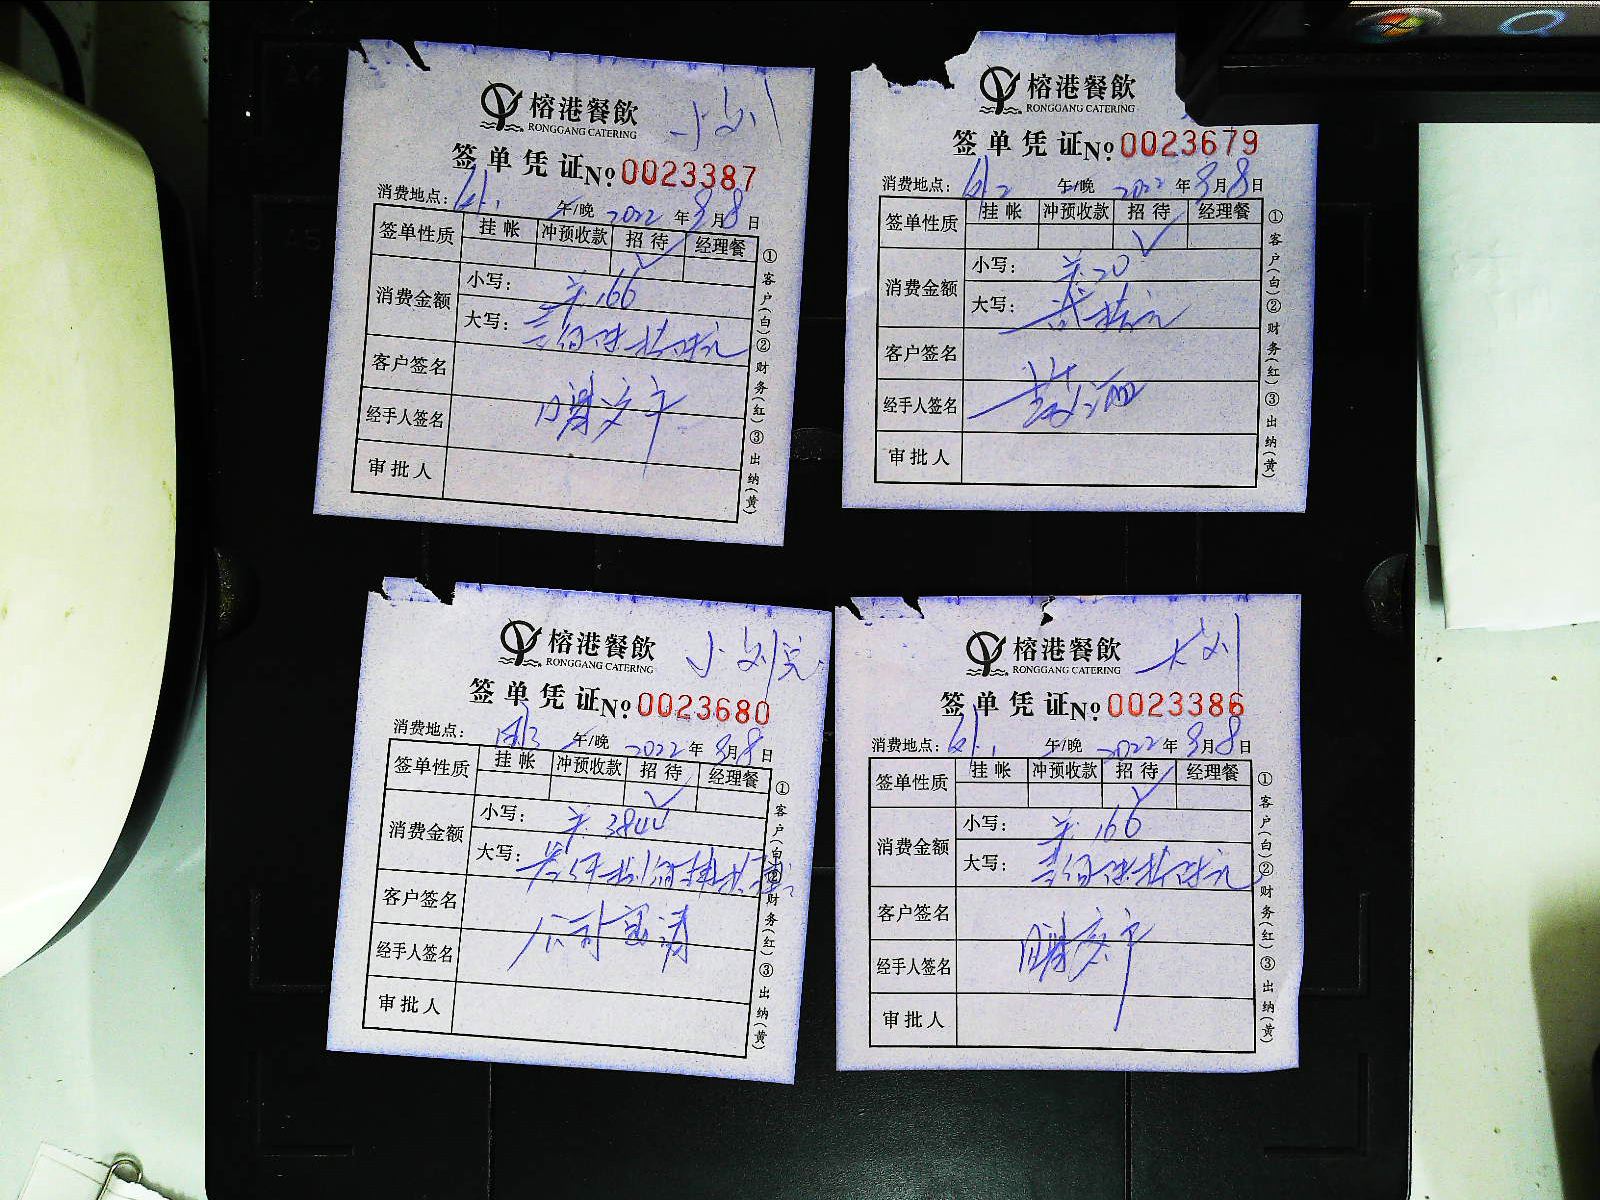 榕港餐飲 小刘
RONGGANG CATERING
签单凭证№ 0023387
消费地点： 午/晚 2022年3月8日
签单性质 挂帐 冲预收款 招待 经理餐
✓
消费金额 小写： 166
大写： 壹佰陆拾陆元
客户签名
经手人签名
审批人
①客户(白)②财务(红)③出纳(黄)
榕港餐飲
RONGGANG CATERING
签单凭证№ 0023679
消费地点： 午/晚 2022年3月8日
签单性质 挂帐 冲预收款 招待 经理餐
✓
消费金额 小写： 20
大写： 贰拾元
客户签名
经手人签名
审批人
①客户(白)②财务(红)③出纳(黄)
榕港餐飲 小刘
RONGGANG CATERING
签单凭证№ 0023680
消费地点： 午/晚 2022年3月8日
签单性质 挂帐 冲预收款 招待 经理餐
✓
消费金额 小写： 
大写：
客户签名 公司宴请
经手人签名
审批人
①客户(白)②财务(红)③出纳(黄)
榕港餐飲 大刘
RONGGANG CATERING
签单凭证№ 0023386
消费地点： 午/晚 2022年3月8日
签单性质 挂帐 冲预收款 招待 经理餐
✓
消费金额 小写： 166
大写： 壹佰陆拾陆元
客户签名
经手人签名
审批人
①客户(白)②财务(红)③出纳(黄)